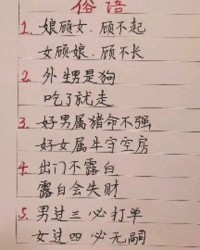 俗语
1. 娘顾女.顾不起
女顾娘.顾不长
2. 外甥是狗
吃了就走
3. 好男属猪命不强
好女属牛守空房
4. 出门不露白
露白会失财
5. 男过三 必打单
女过四 必无嗣